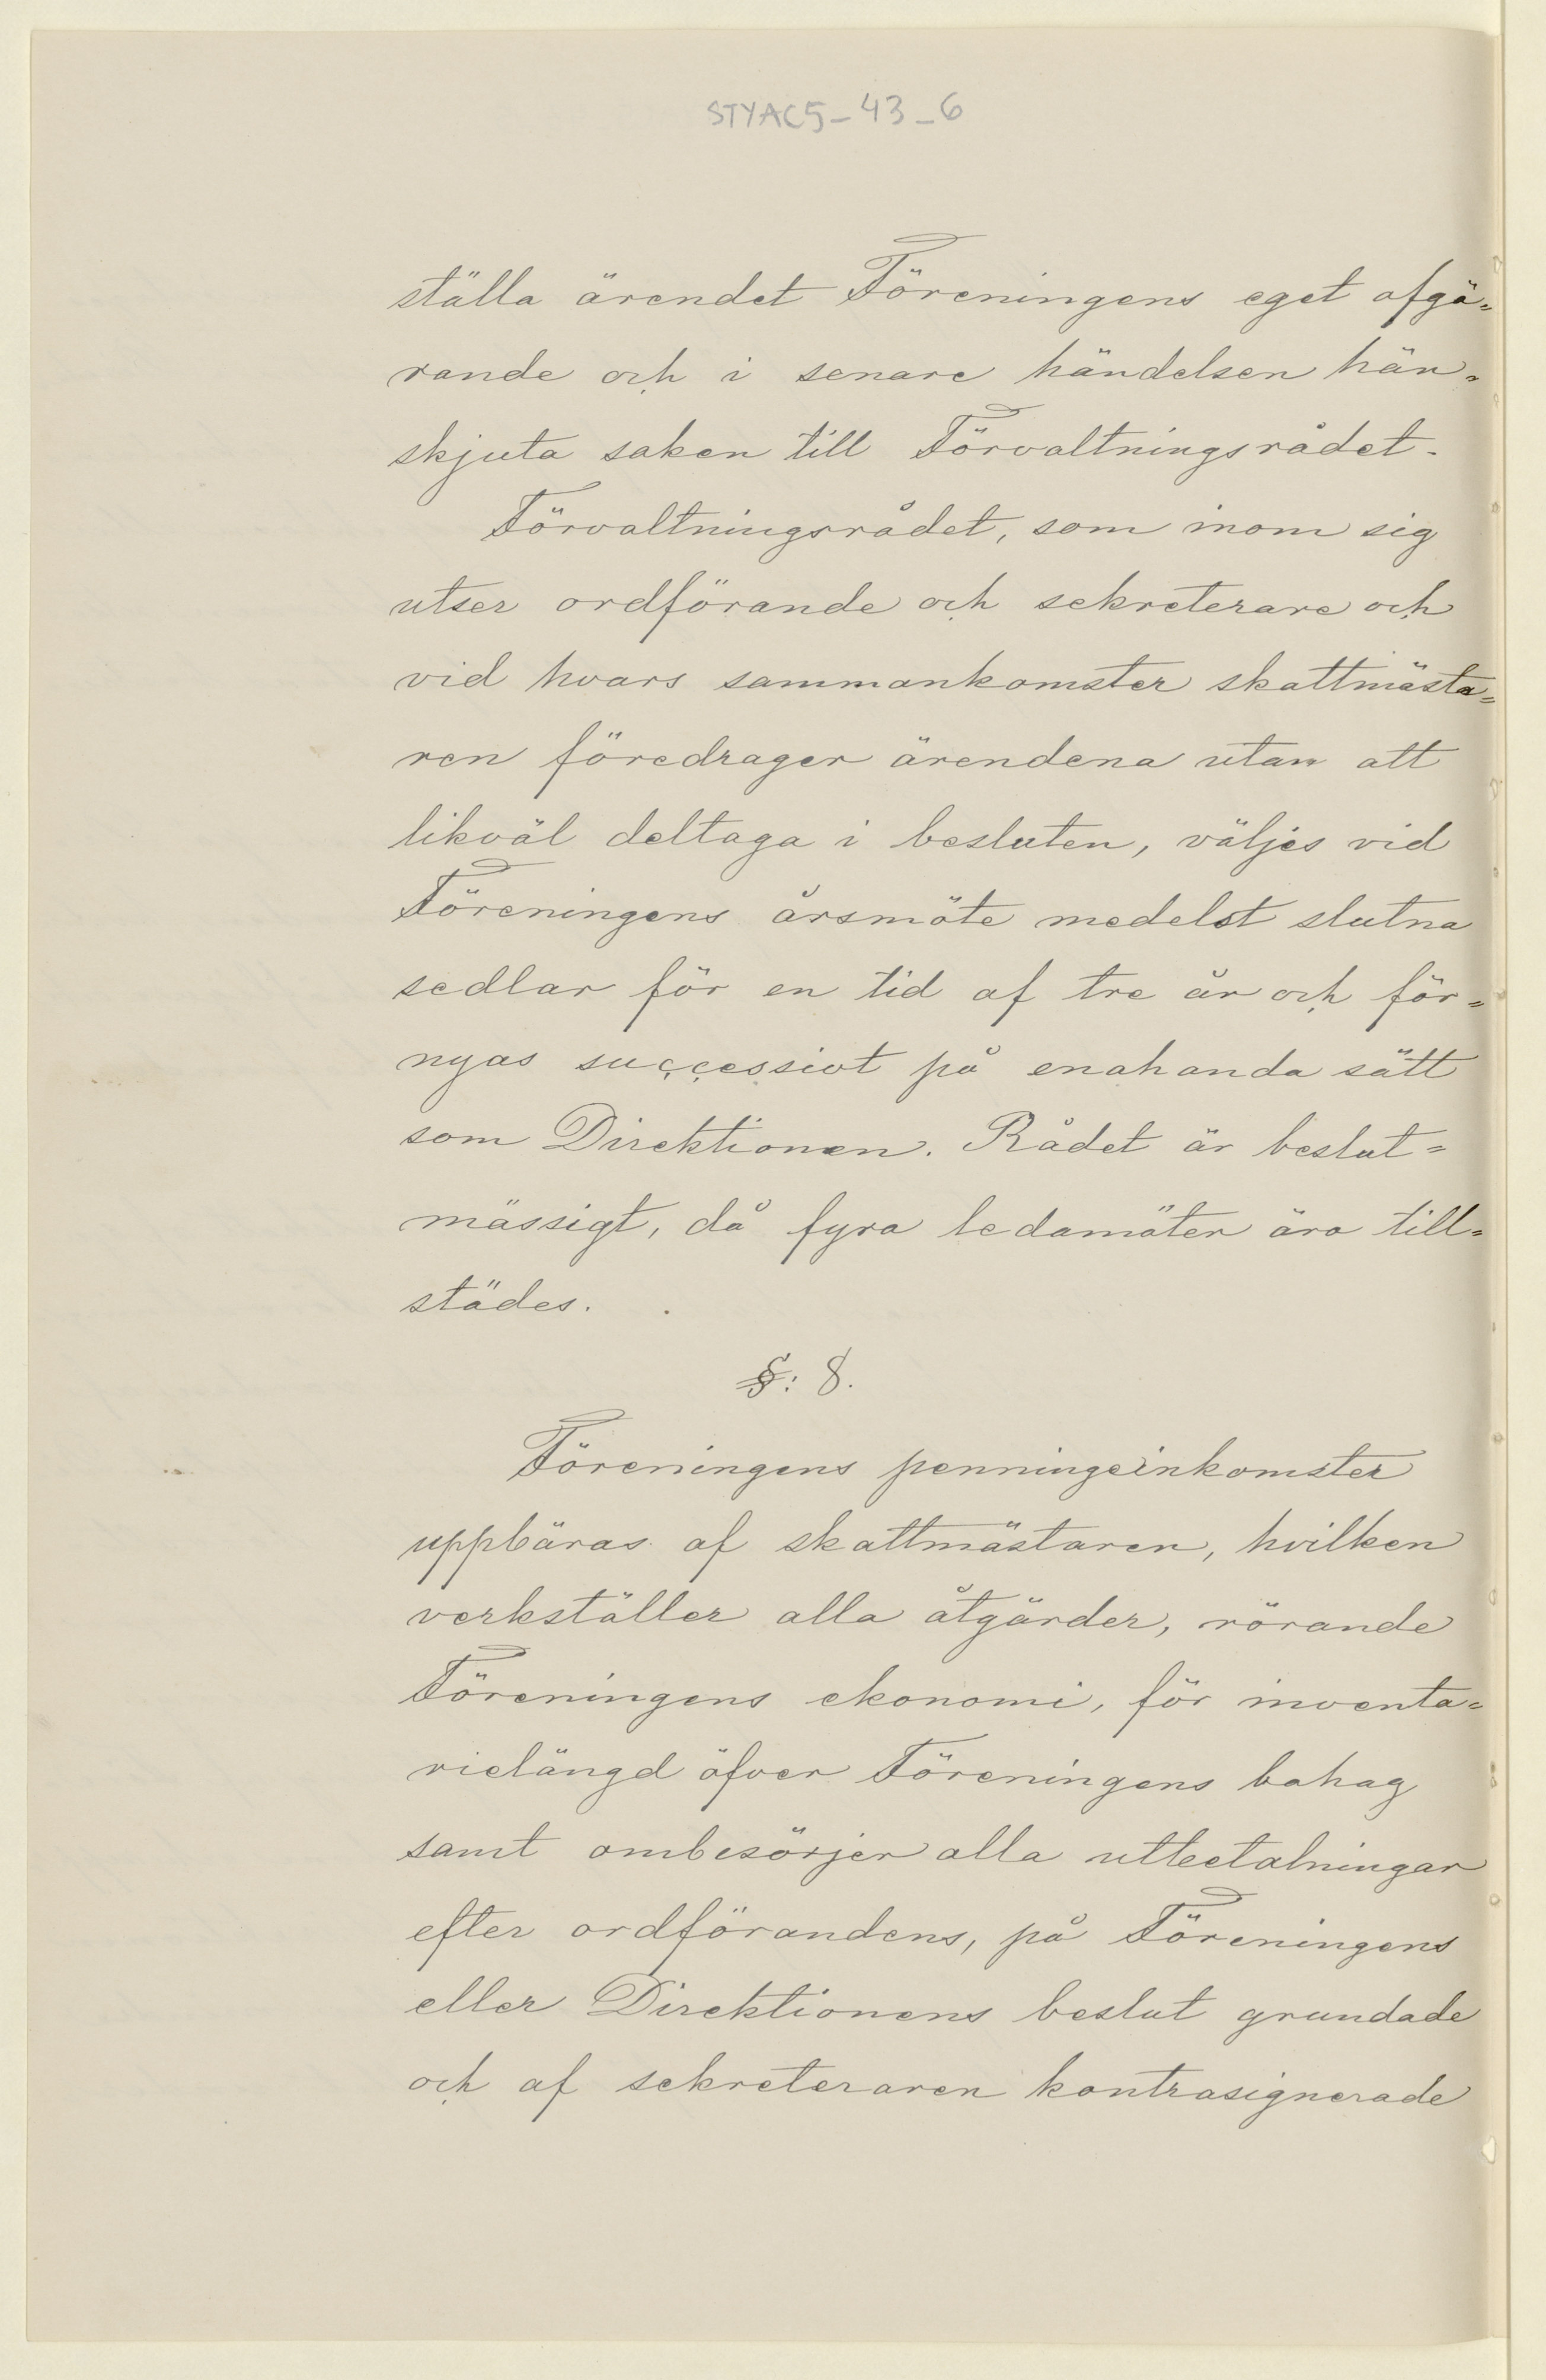 STYAC5_43_6
ställa ärendet Föreningens eget afgö=
rande och i senare händelsen hän=
skjuta saken till Förvaltningsrådet.
Förvaltningsrådet, som inom sig
utser ordförande och sekreterare och
vid hvars sammankomster skattmästa=
ren föredrager ärendena utan att
likväl deltaga i besluten, väljes vid
Föreningens årsmöte medelst slutna
sedlar för en tid af tre år och för=
nyas successivt på enahanda sätt
som Direktionen. Rådet är beslut=
mässigt, då fyra ledamöter äro till=
städes.
§: 8.
Föreningens penningeinkomster
uppbäras af skattmästaren, hvilken
verkställer alla åtgärder, rörande
Föreningens ekonomi, för inventa=
rielängd öfver Föreningens bohag
samt ombesörjer alla utbetalningar
efter ordförandens, på Föreningens
eller Direktionens beslut grundade
och af sekreteraren kontrasignerade